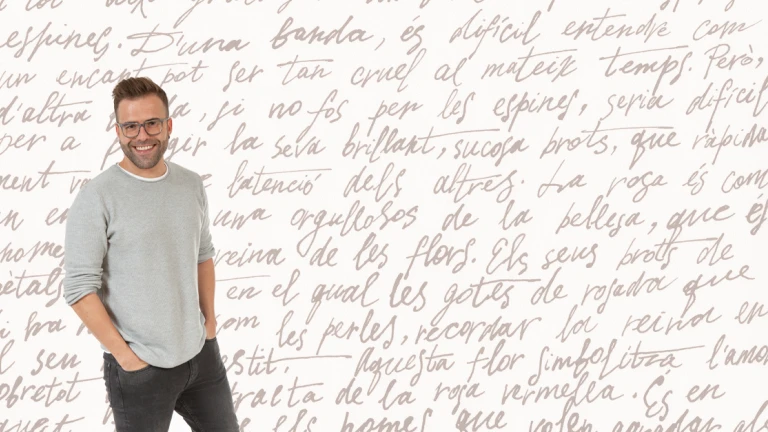 espines. D'una banda, és difícil entendre com
un encant pot ser tan cruel al mateix temps. Però,
d'altra si no fos per les espines, seria difícil
per a la seva brillant, sucosa brots, que ràpida
ment latenció dels altres. La rosa és com
una orgullosos de la bellesa, que és
home reina de les flors. Els seus brots de
pètals en el qual les gotes de rosada que
com les perles, recordar la reina en
seu Aquesta flor simbolitza l'amor
de la rosa vermella. És en
els homes que volen agradar al